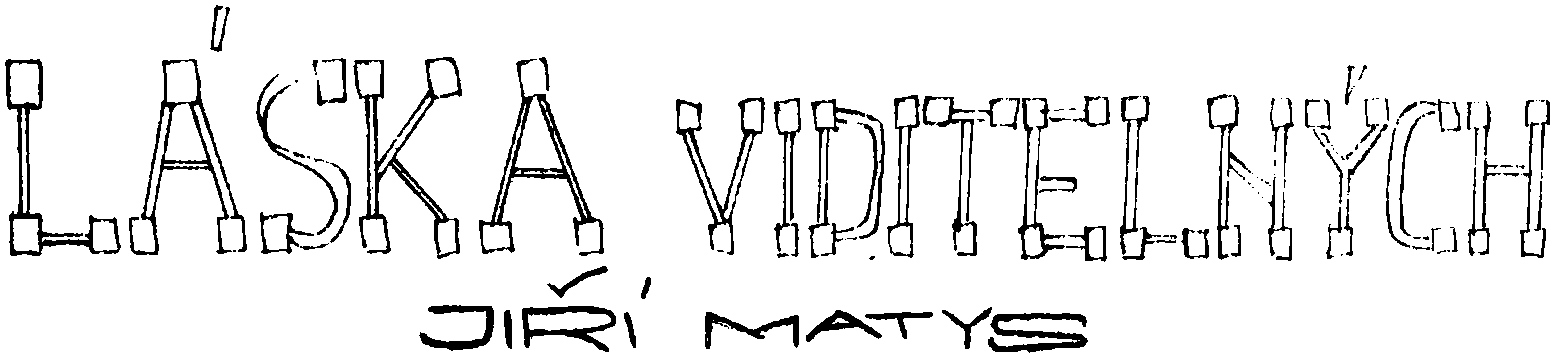 LÁSKA VIDITELNÝCH
JIŘÍ MATYS